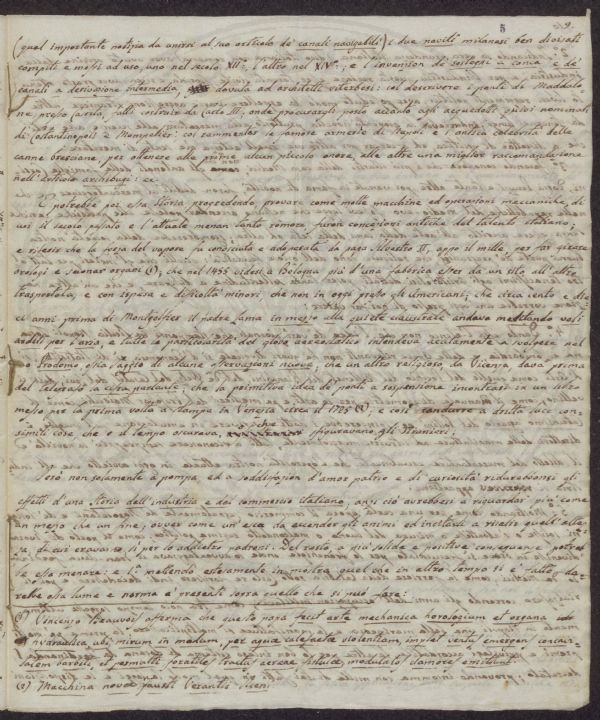 5 9.
(quel importante notizia da unirsi al suo articolo de' canali navigabili) i due navili milanesi ben divisati
compiti e messi ad uso, uno nel secolo XII.°, l'altro nel XIV.°; e l'invenzion de' sostegni a conca e de'
canali a derivazione intermedia, dovuta ad architetti viterbesi: così descrivere i ponti di Maddalo
ne presso Caserta, fatti costruire da Carlo III, onde procurargli posto accanto agli acquedotti ivi nominati
di Costantinopoli e Montpellier: così rammentar le famose armerie di Napoli e l'antica celebrità delle
canne bresciane, per ottenere alle prime alcun piccolo onore, alle altre una miglior raccomandazione
nell'articolo archibugi: ec.
E potrebbe poi essa storia procedendo, provare come molte macchine ed operazioni meccaniche, di
cui il secolo passato e l'attuale menan tanto romore furon concezioni antiche del talento italiano;
e riferir che la forza del vapore fu conosciuta e adoperata da papa Silvestro II, appo il mille, per far girare
orologi e suonar organi (1), che nel 1455 videsi a Bologna più d'una fabrica esser da un sito all'altro
trasportata, e con ispesa e difficoltà minori che non in oggi presso gli Americani; che circa cento e die
ci anni prima di Mongolfier il padre Lana in mezzo alla quiete claustrale andava meditando voli
arditi per l'aria, e tutte le particolarità del globo aereostatico intendeva acutamente a svolgere nel
Prodomo o sia saggio di alcune osservazioni nuove; che un altro religioso, da Vicenza, dava prima
del la primitiva idea di ponti a sospensione mostrarsi in un libro
messo per la prima volta a stampa in Venezia circa il 1625 (2), e così condurre a dritta luce con
simili cose che o il tempo oscurava, o che sfiguravano gli stranieri.
Però non solamente a pompa ed a soddisfazion d'amor patrio e di curiosità ridurrebbonsi gli
effetti d'una storia dell'industria e del commercio italiano, anzi ciò avrebbesi a riguardar più come
un mezzo che un fine, ovver come un'esca da accender gli animi ed incitarli a risalir quell'altez
za, di cui eravamo sì per lo addietro padroni. Del resto a più solide e positive conseguenze potreb
be essa menare: e 1.° mettendo estesamente in mostra quel che in altro tempo si è fatto, da
rebbe essa lume e norma a' presenti sopra quello che si può fare:
(1) Vincenzo Beauvois afferma che questo papa fecit arte mechanica horologium et organa
hydraulica ubi mirum in modum, per aquae calefactae violentiam, implet ventus emergens concavi
tatem barbiti, et permulti foratiles tractus aereae fistulae modulatos clamores emittunt.
(2) Machinae novae Fausti Verantii siceni.